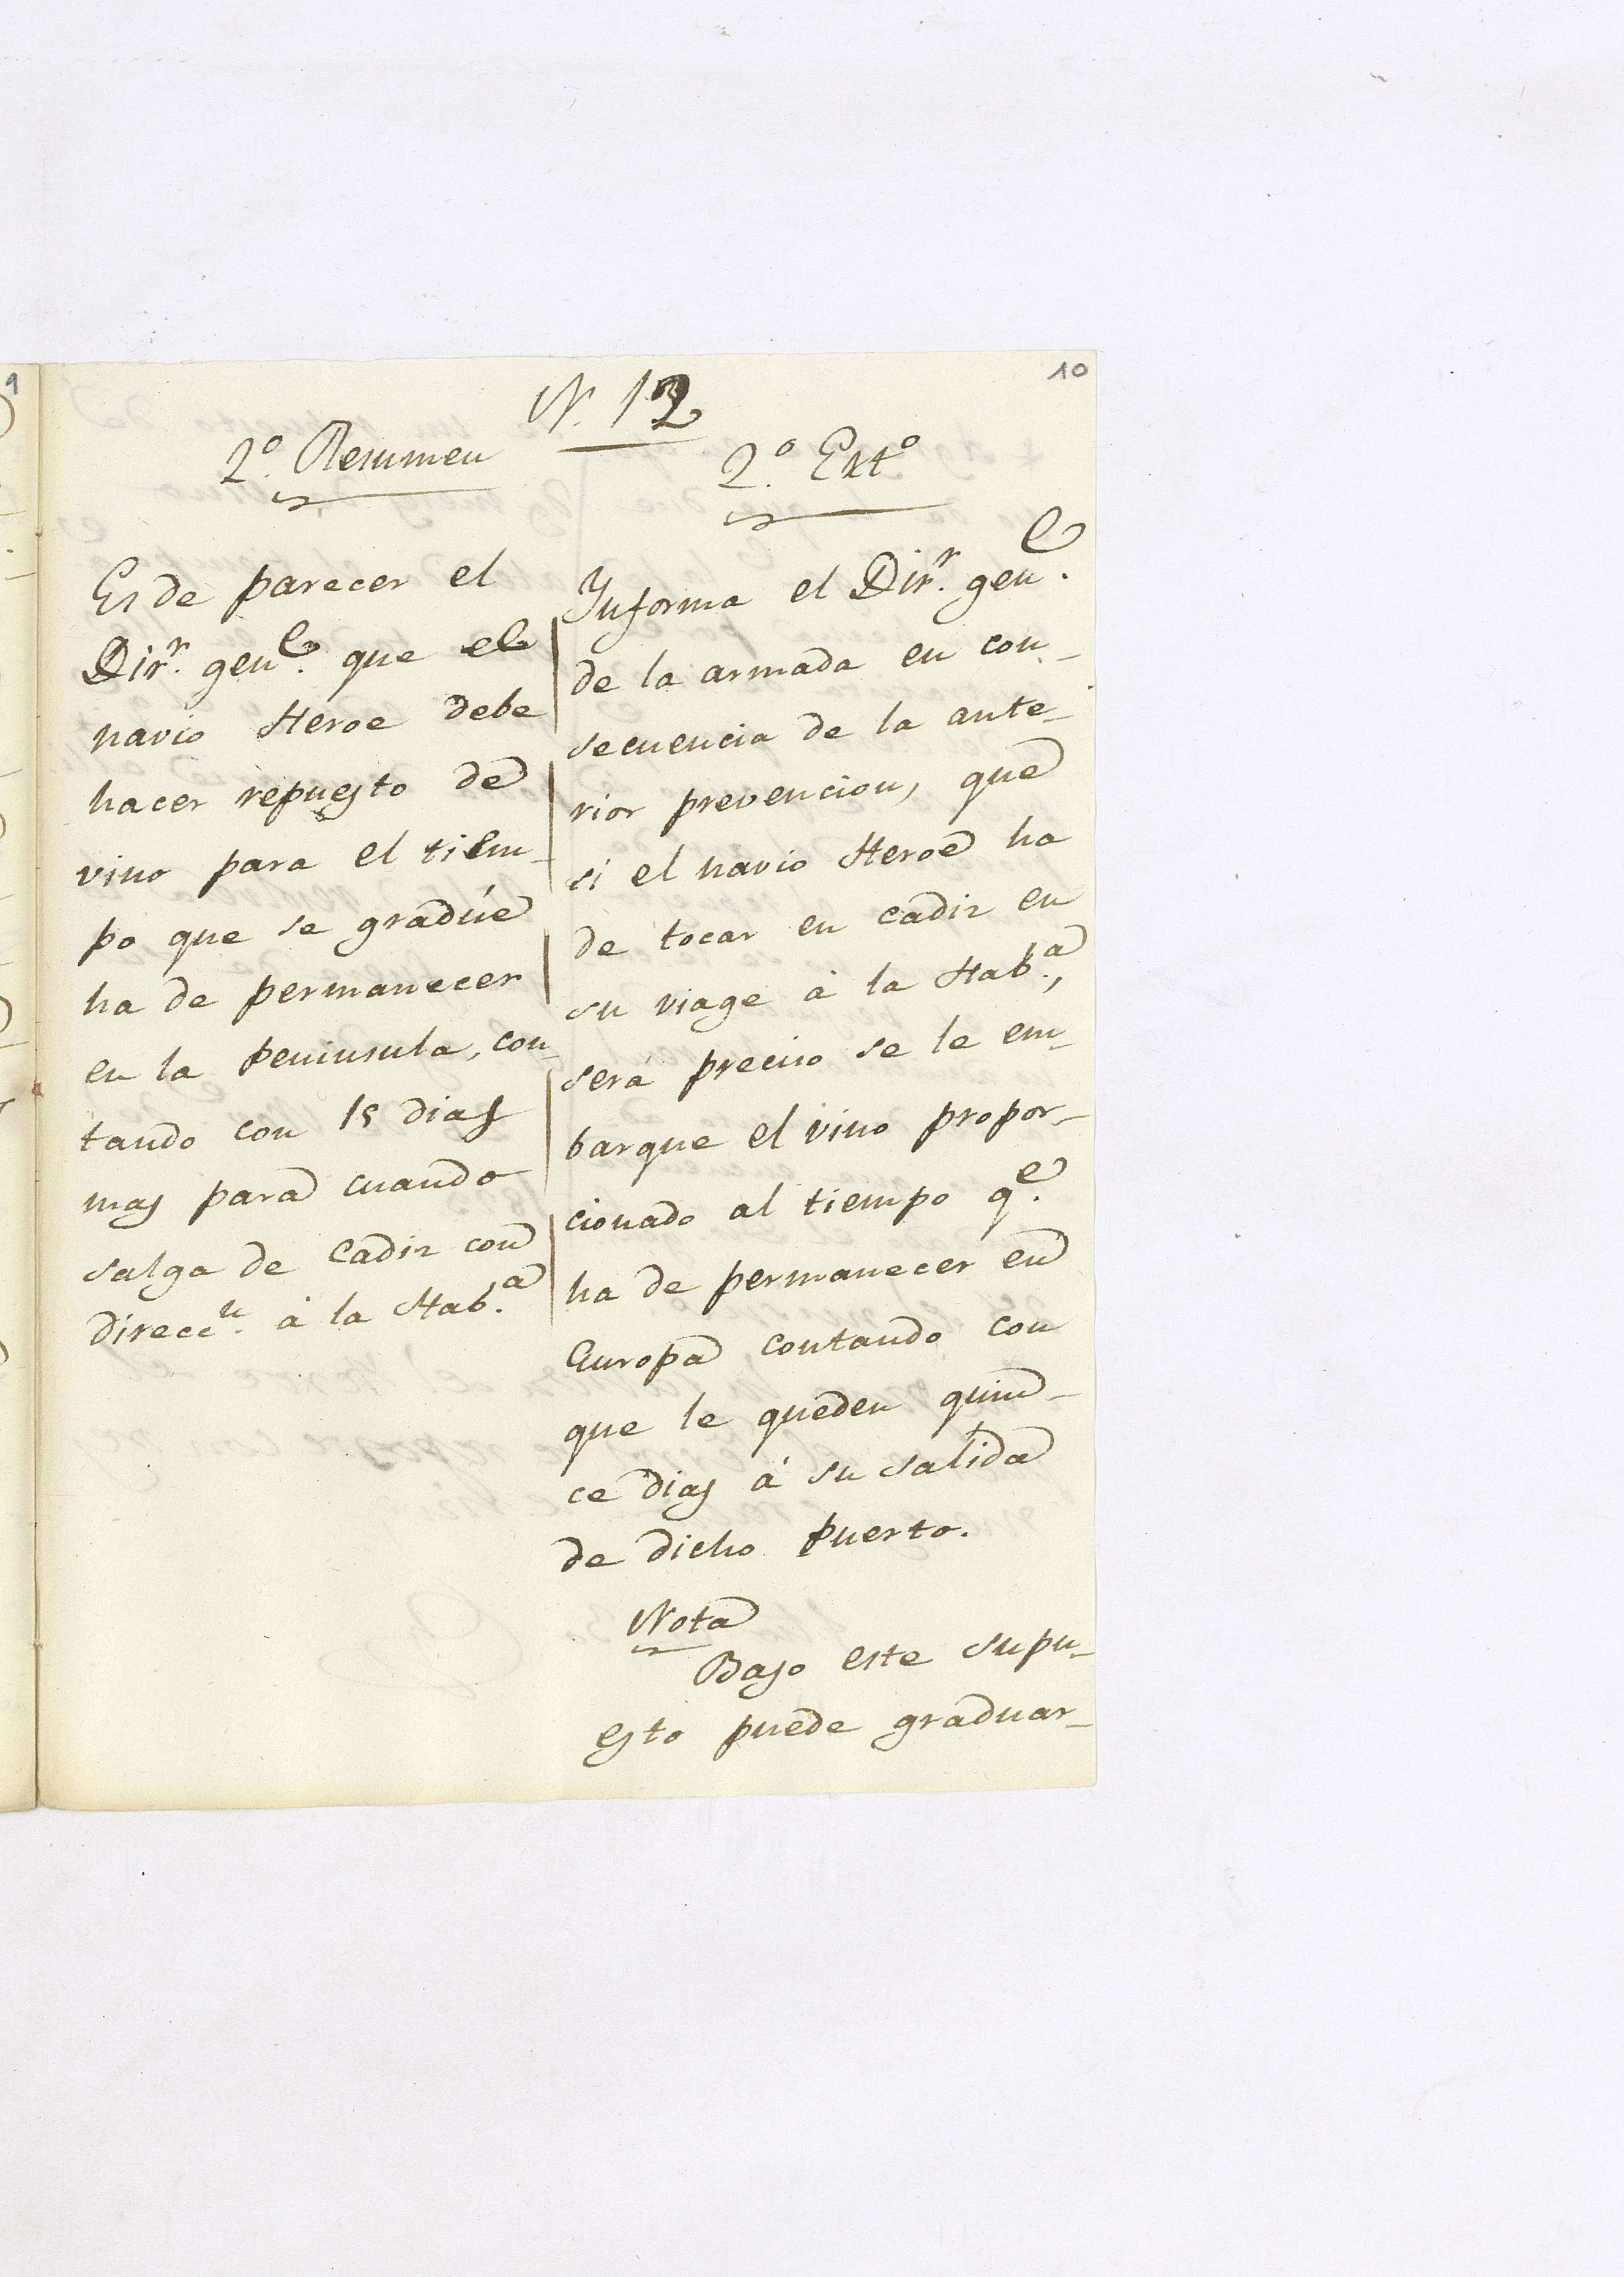 10
9
N. 12
2º. Resumen
Es de parecer el
Dirr. genl. que el
navio Heroe debe
hacer repuesto de
vino para el tiem_
po que se gradúe
ha de permanecer
en la Peninsula, con_
tando con 15 dias
mas para cuando
salga de Cadiz con
direccn. á la Haba.
2º. Exto
Informa el Dirr. genl.
de la armada en con_
secuencia de la ante_
rior prevencion, que
si el navio Heroe ha
de tocar en Cadiz en
su viage á la Haba.,
será preciso se le em_
barque el vino propor_
cionado al tiempo qe.
ha de permanecer en
Europa contando con
que le queden quin_
ce dias á su salida
de dicho puerto.
Nota
Bajo este supu_
esto puede graduar_